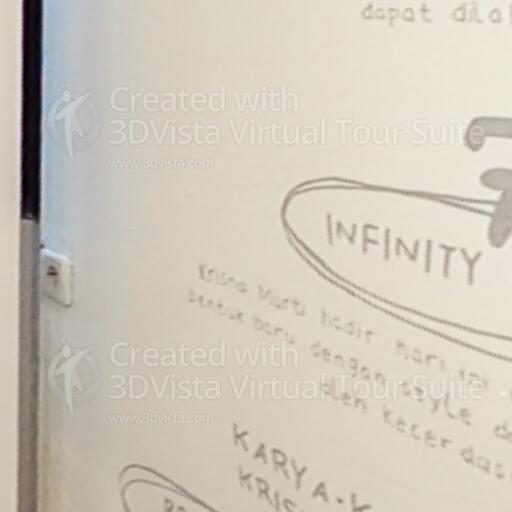 dapat dila
Created with
3DVista Virtual Tour Suite
www.3dvista.com
INFINITY
Krisna Murti hadir hari ini
bentuk baru dengan style de
oleh kecerdas
Created with
3DVista Virtual Tour Suite
www.3dvista.com
KARYA-K
KRIS